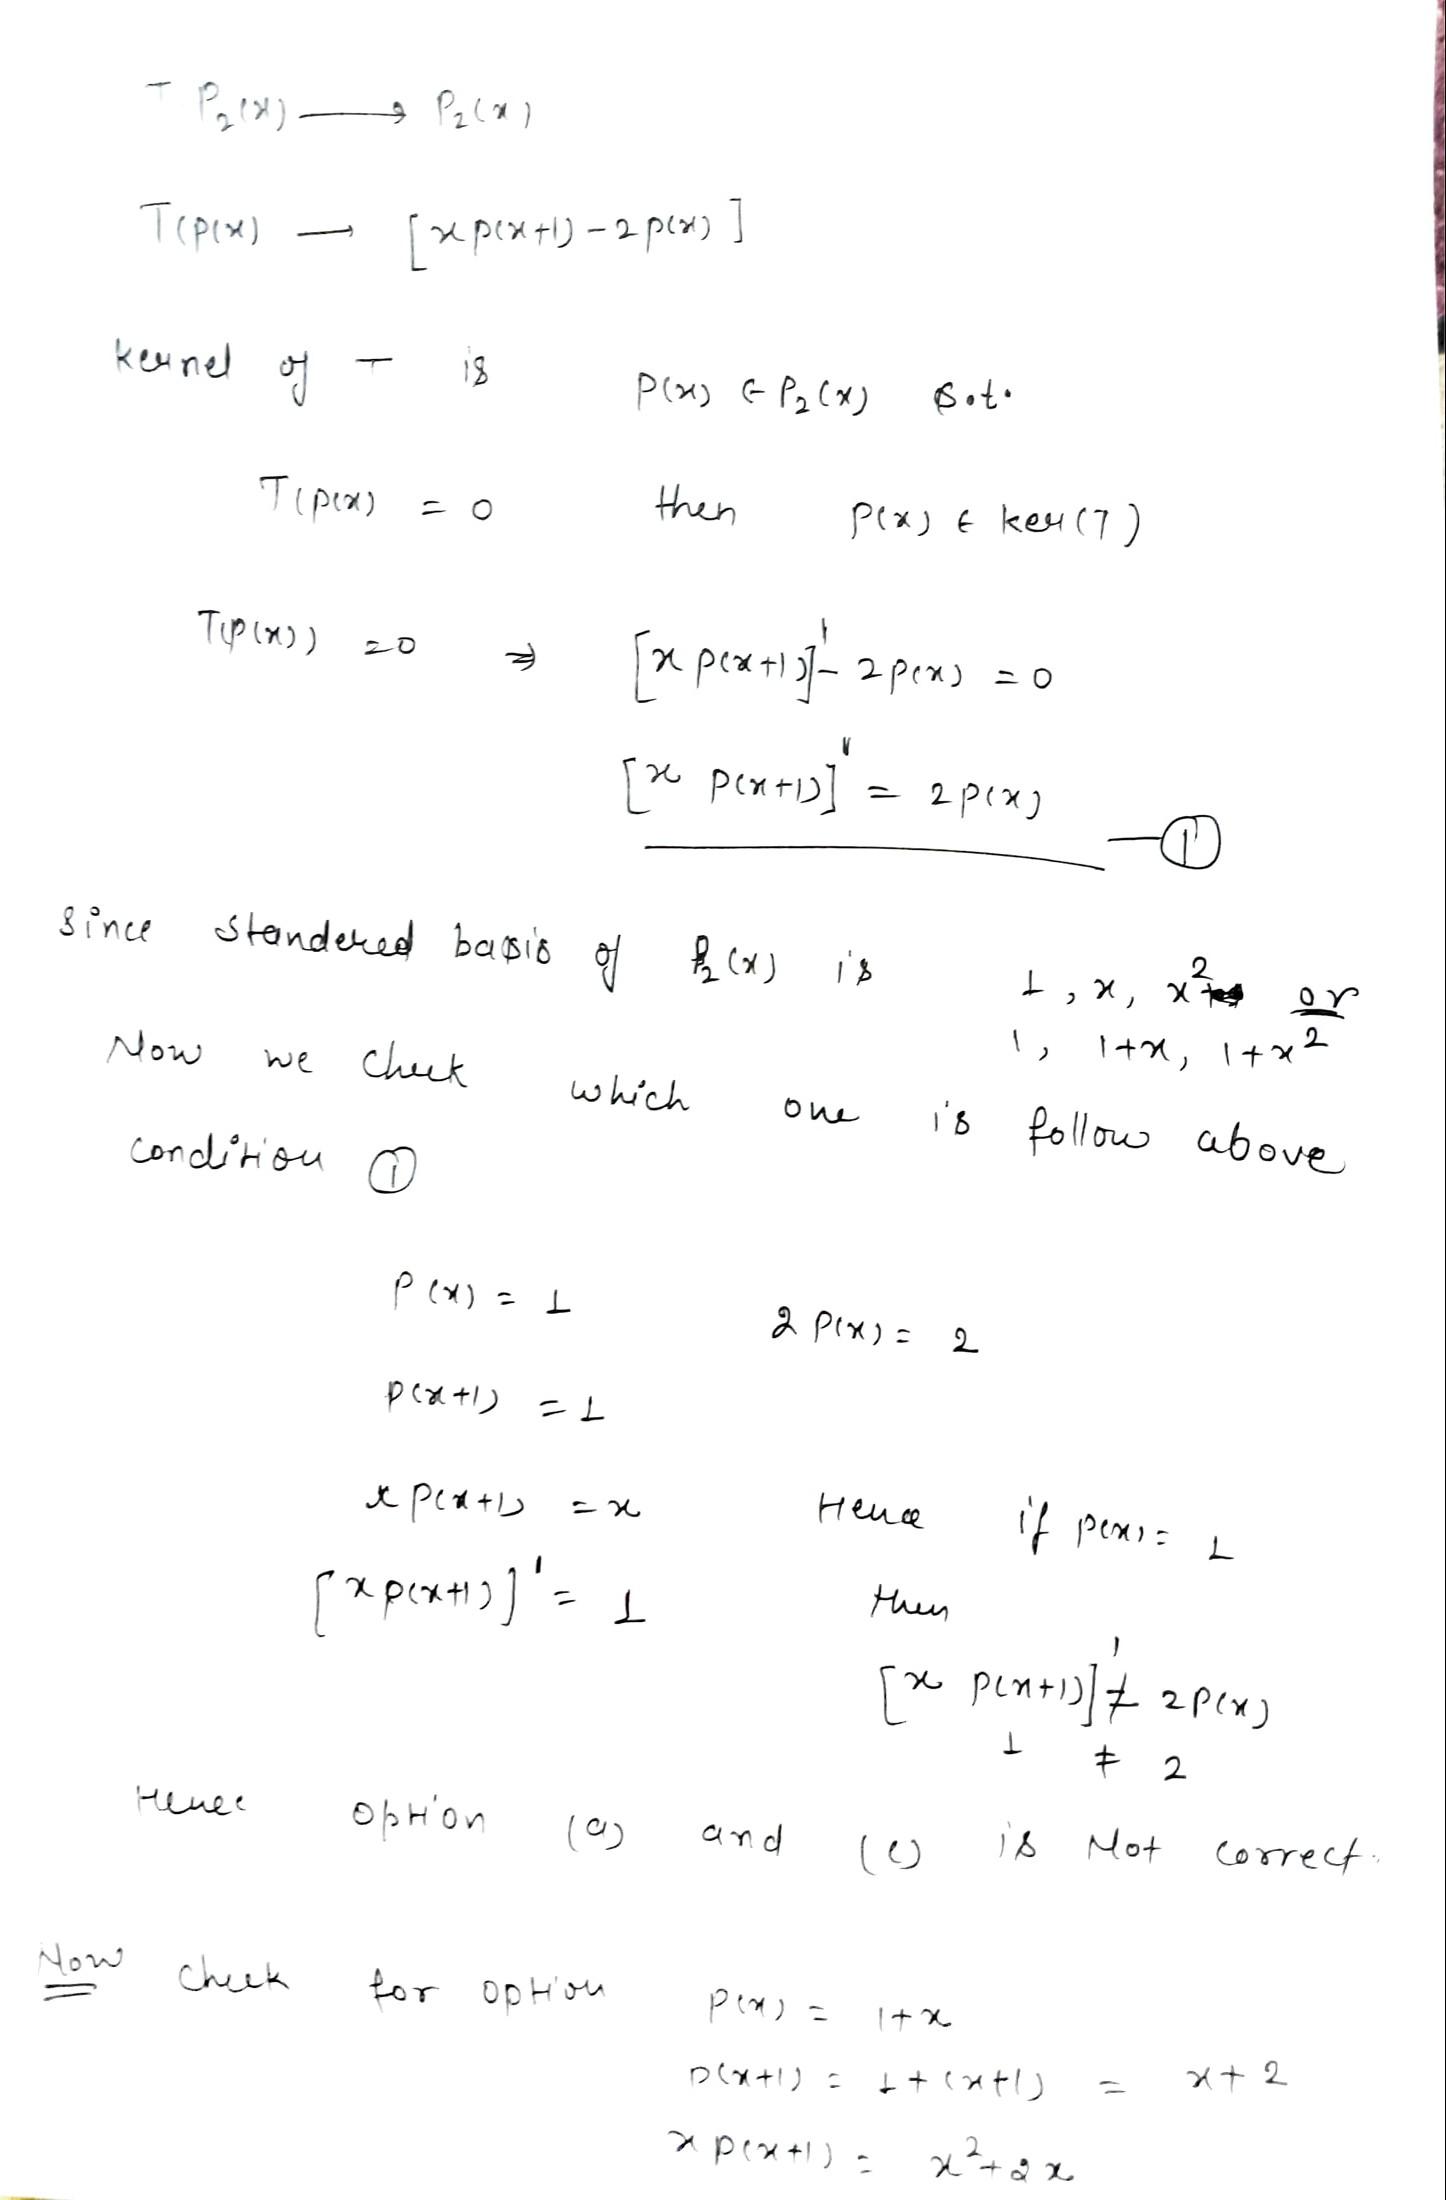 T P₂(x) ⟶ P₂(x)
T(p(x) → [x p(x+1) - 2p(x)]
kernel of T is p(x) ∈ P₂(x) s.t.
T(p(x) = 0 then p(x) ∈ ker(T)
T(p(x)) = 0 ⇒ [x p(x+1)]' - 2p(x) = 0
[x p(x+1)]' = 2p(x) — ①
Since standered basis of P₂(x) is 1, x, x² or
1, 1+x, 1+x²
Now we check which one is follow above
condition ①
P(x) = 1 2 P(x) = 2
p(x+1) = 1
x p(x+1) = x Hence if p(x) = 1
[x p(x+1)]' = 1 then
[x p(x+1)]' ≠ 2p(x)
1 ≠ 2
Hence option (a) and (c) is Not correct.
Now check for option p(x) = 1+x
p(x+1) = 1+(x+1) = x+2
x p(x+1) = x²+2x